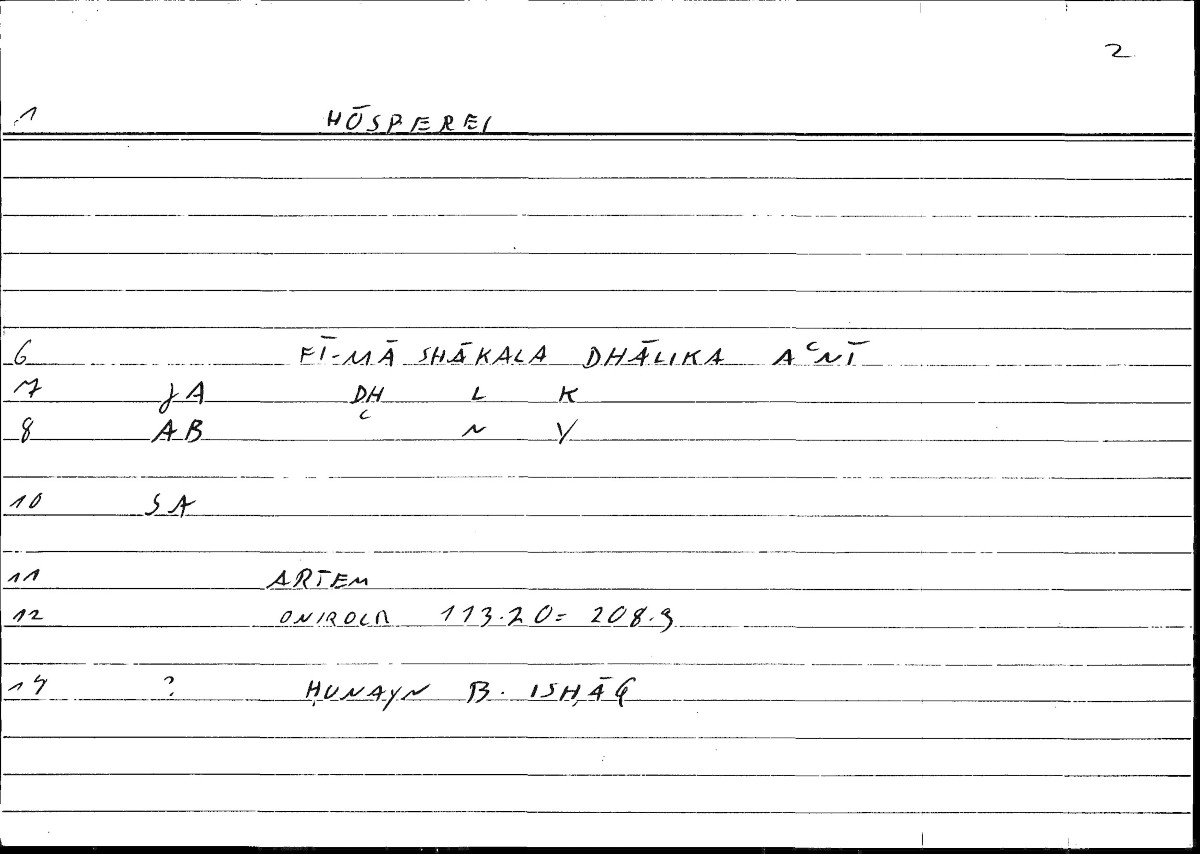 2
1 HŌSPEREI
6 FĪ-MĀ SHĀKALA DHĀLIKA AʿNĪ
7 JA DH L K
8 AB ʿ N Y
10 SA
11 ARTEM
12 ONIROCR 113.20 = 208.9
14 ? ḤUNAYN B. ISḤĀQ